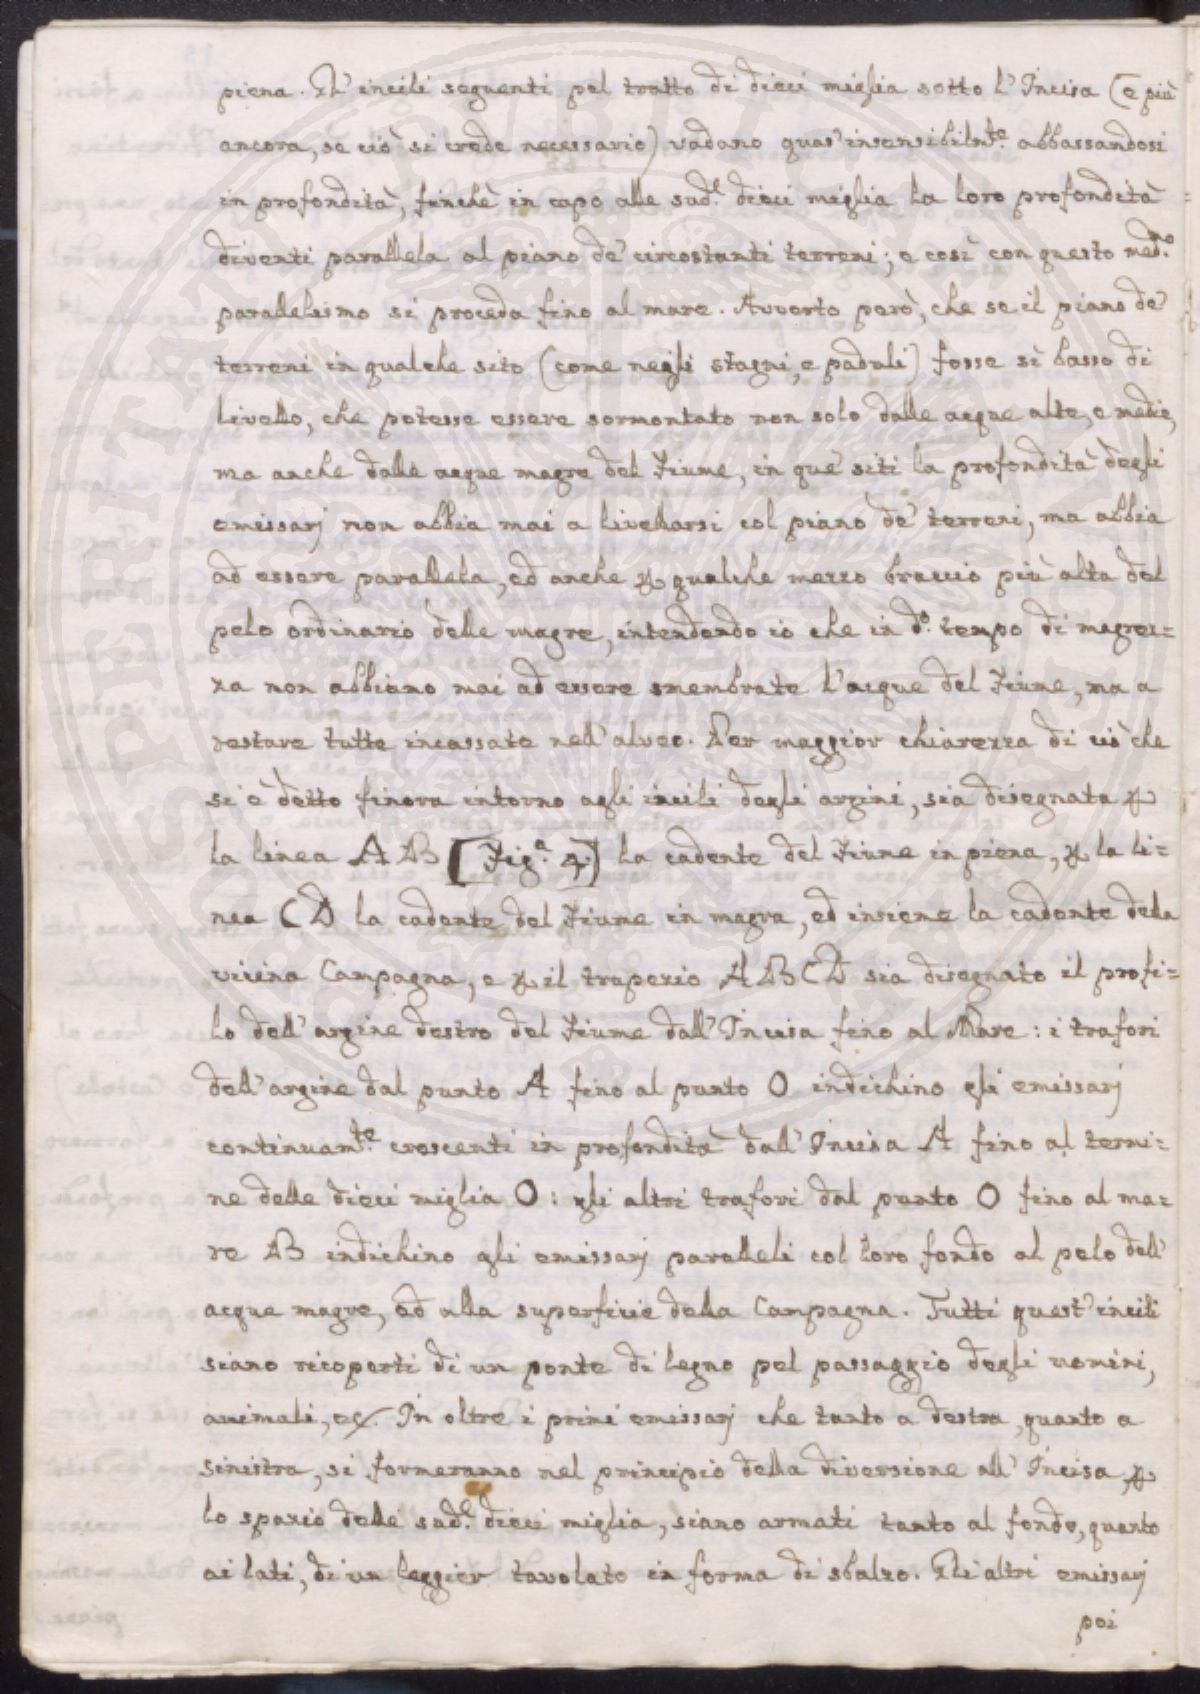 piena. Gl' incili seguenti pel tratto di dieci miglia sotto l'Incisa (e più
ancora, se ciò si crede necessario) vadano quas' insensibilm.te abbassandosi
in profondità, finchè in capo alle sud.e dieci miglia la loro profondità
diventi parallela al piano de' circostanti terreni; e così con questo med.mo
parallelismo si proceda fino al mare. Avverto però, che se il piano de'
terreni in qualche sito (come negli stagni, e paduli) fosse sì basso di
livello, che potesse essere sormontato non solo dalle acque alte, e medie,
ma anche dalle acque magre del Fiume, in que' siti la profondità degli
emissarj non abbia mai a livellarsi col piano de' terreni, ma abbia
ad essere parallela, ed anche p qualche mezzo braccio più alta del
pelo ordinario delle magre, intendendo io che in d.o tempo di magrez=
za non abbiano mai ad essere smembrate l'acque del Fiume, ma a
restare tutte incassate nell'alveo. Per maggior chiarezza di ciò che
si è detto finora intorno agli incili degli argini, sia disegnata p
la linea AB [Fig.a 4.] la cadente del Fiume in piena, p la li=
nea CD la cadente del Fiume in magra, ed insieme la cadente della
vicina Campagna, e p il trapezio ABCD sia disegnato il profi=
lo dell'argine destro del Fiume dall'Incisa fino al Mare: i trafori
dell'argine dal punto A fino al punto O indichino gli emissarj
continuam.te crescenti in profondità dall'Incisa A fino al termi=
ne delle dieci miglia O: gli altri trafori dal punto O fino al ma=
re B indichino gli emissarj paralleli col loro fondo al pelo dell'
acque magre, ed alla superficie della Campagna. Tutti quest'incili
siano ricoperti di un ponte di legno pel passaggio degli uomini,
animali, ec. In oltre i primi emissarj che tanto a destra, quanto a
sinistra, si formeranno nel principio della diversione all'Incisa, p
lo spazio delle sud.e dieci miglia, siano armati tanto al fondo, quanto
ai lati, di un leggier tavolato in forma di sbalzo. Gli altri emissarj
poi